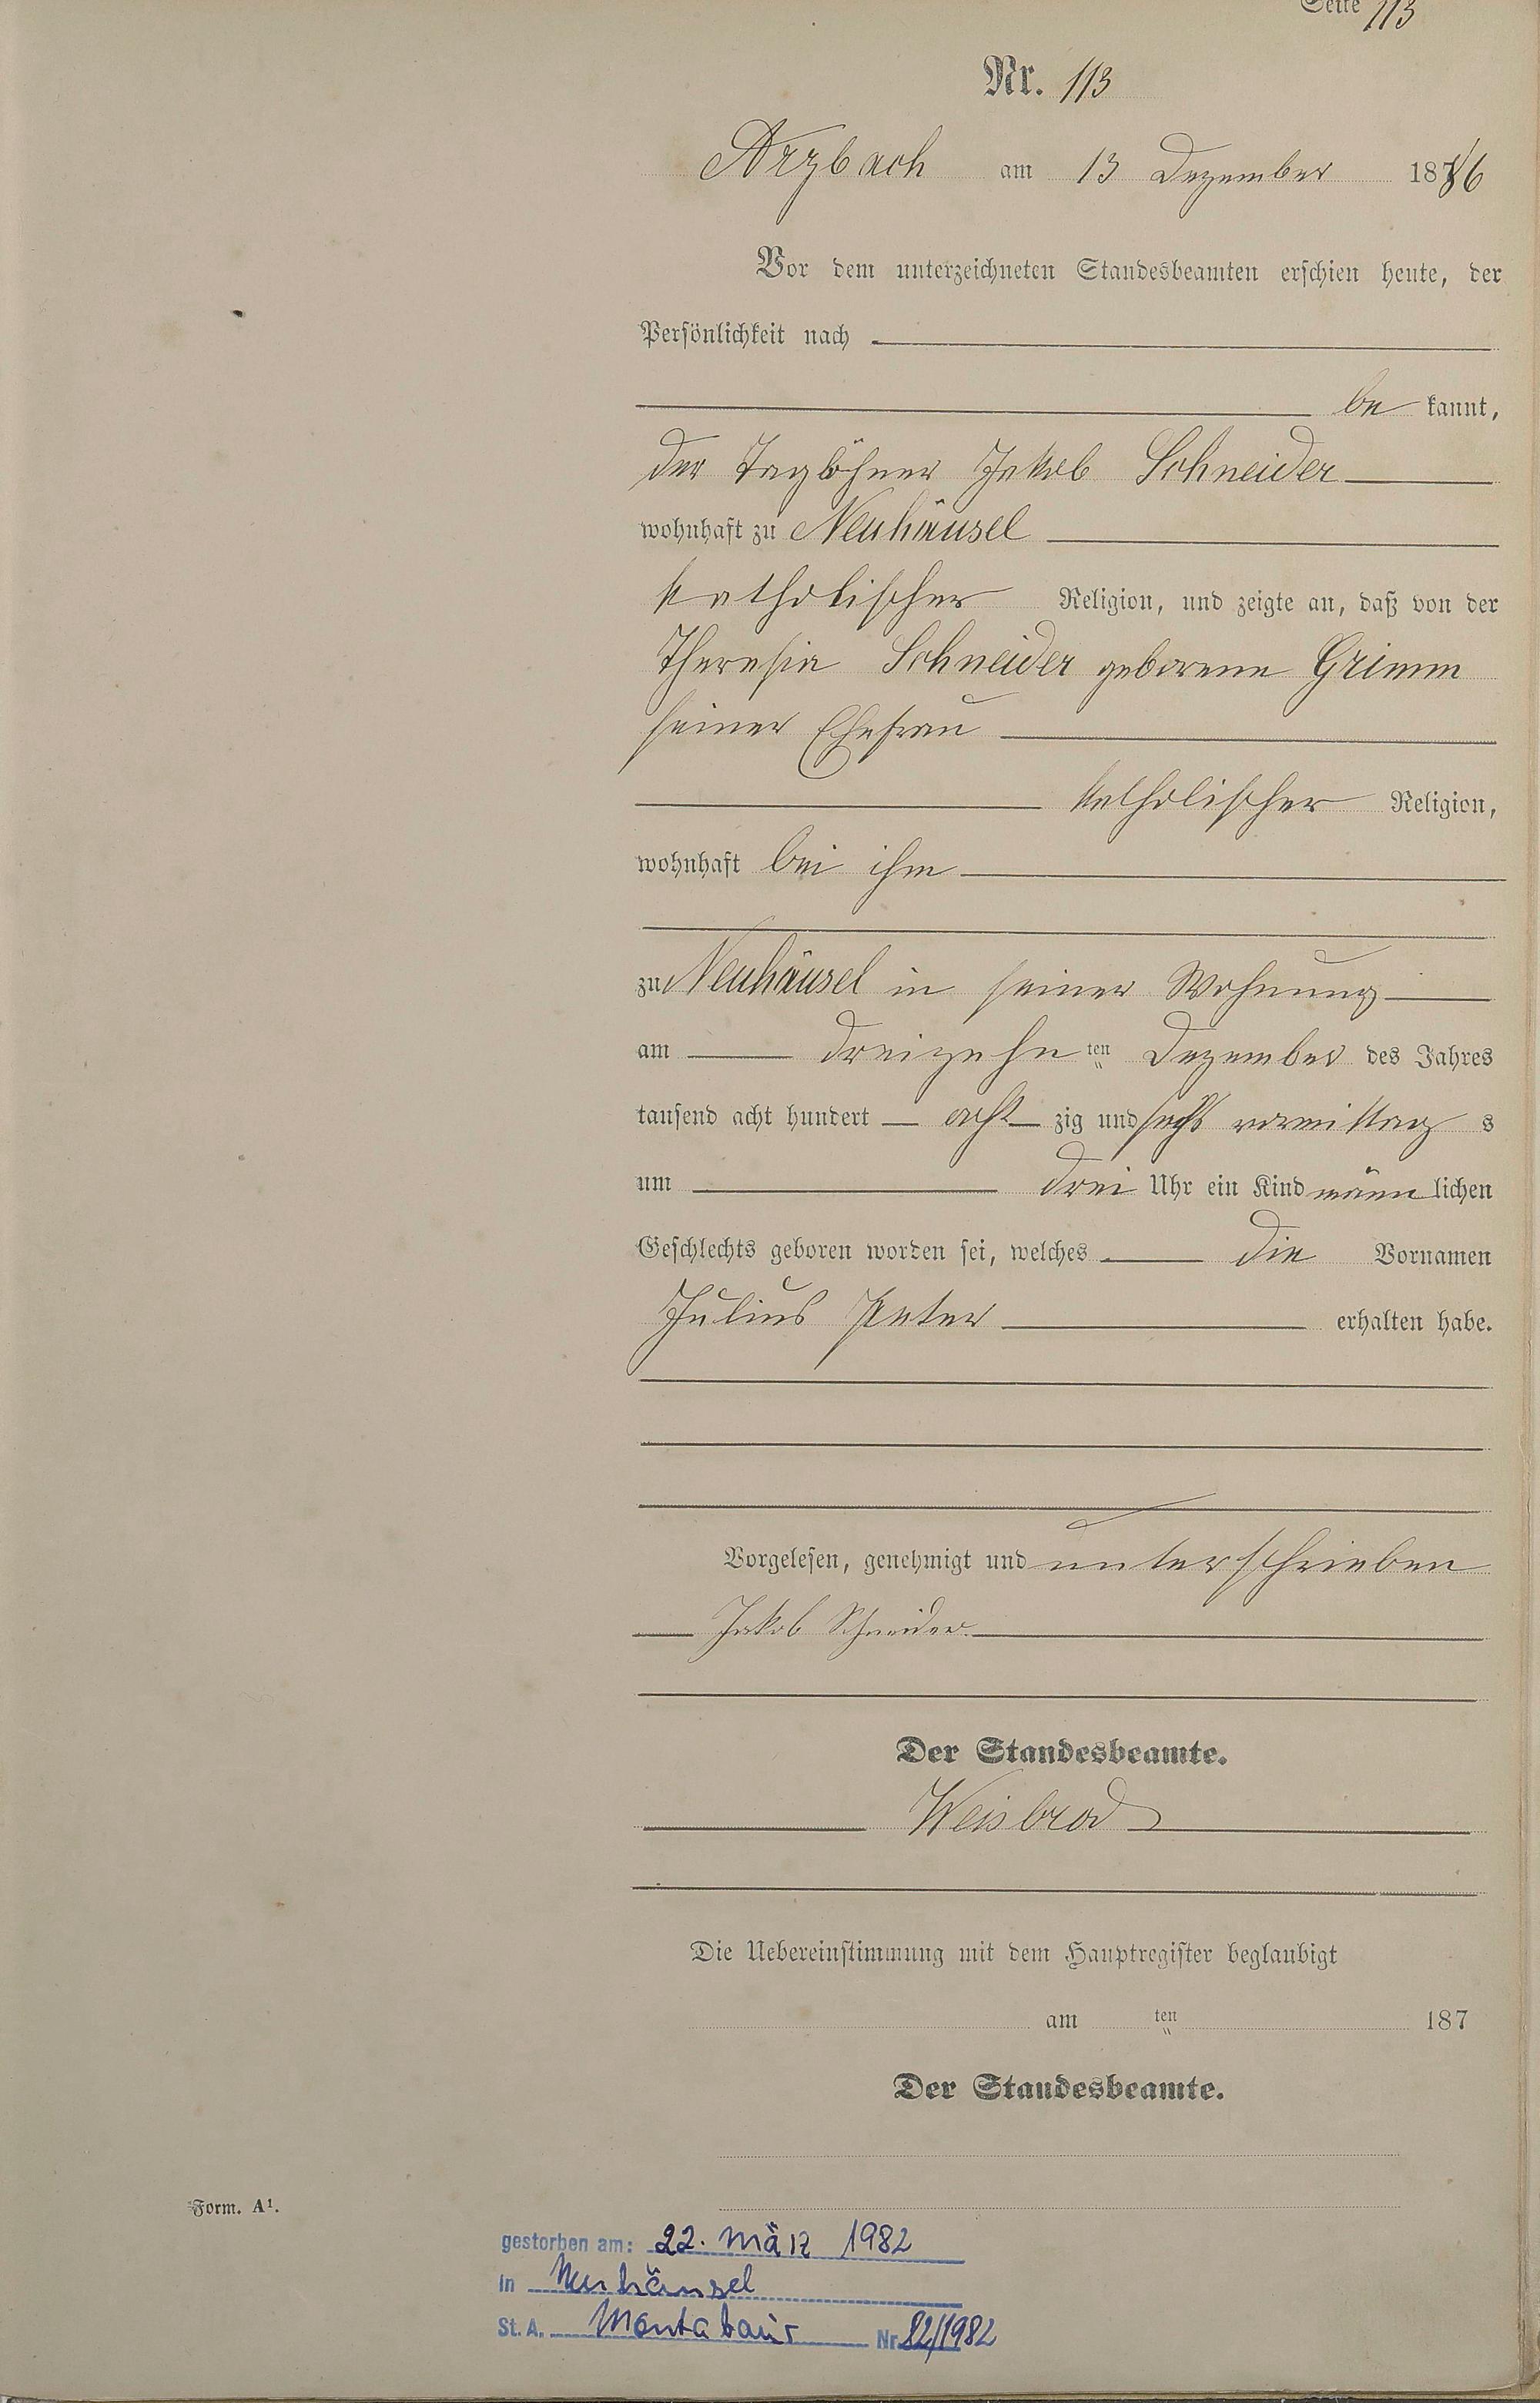 Seite 113
Nr. 113
Arzbach am 13 Dezember 1886
Vor dem unterzeichneten Standesbeamten erschien heute, der
Persönlichkeit nach
be kannt,
der Taglöhner Jakob Schneider
wohnhaft zu Neuhäusel
katholischer Religion, und zeigte an, daß von der
Theresia Schneider geborene Grimm
seiner Ehefrau
katholischer Religion,
wohnhaft bei ihm
zu Neuhäusel in seiner Wohnung
am dreizehn ten Dezember des Jahres
tausend acht hundert acht zig und sechs vormittag s
um drei Uhr ein Kind männ lichen
Geschlechts geboren worden sei, welches die Vornamen
Julius Peter erhalten habe.
Vorgelesen, genehmigt und unterschrieben
Jakob Schneider
Der Standesbeamte.
Weisbrod
Die Uebereinstimmung mit dem Hauptregister beglaubigt
am ten 187
Der Standesbeamte.
Form. A¹.
gestorben am: 22. März 1982
in Neuhäusel
St. A. Montabaur Nr. 82/1982